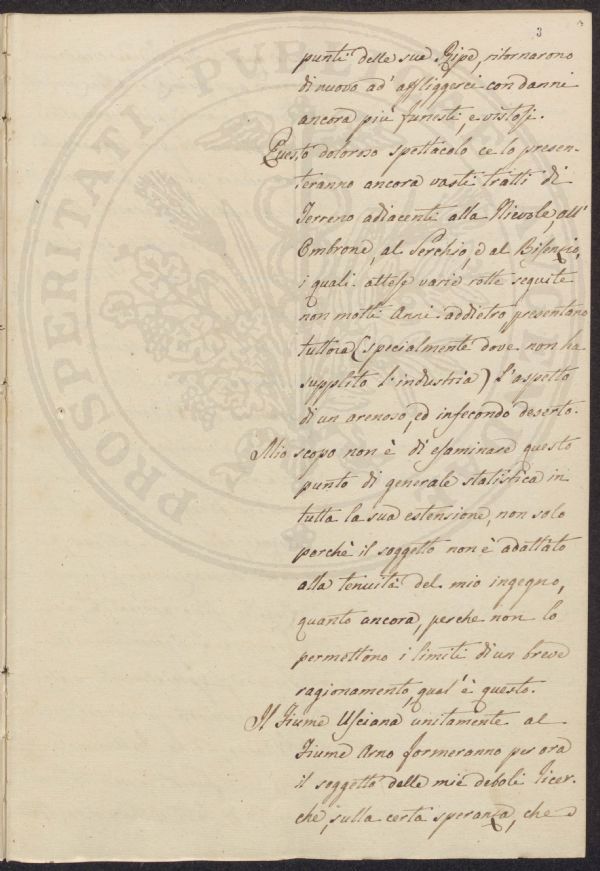 3
punti delle sue Ripe, ritornarono
di nuovo ad' affliggerci con danni
ancora più funesti, e vistosi.
Questo doloroso spettacolo ce lo presen-
teranno ancora vasti tratti di
Terreno adiacenti alla Nievole, all'
Ombrone, al Serchio, e al Bisenzio,
i quali attese varie rotte seguite
non molti Anni addietro presentano
tuttora (specialmente dove non ha
supplito l'industria) l'aspetto
di un arenoso, ed infecondo deserto.
Mio scopo non è di esaminare questo
punto di generale statistica in
tutta la sua estensione, non solo
perchè il soggetto non è adattato
alla tenuità del mio ingegno,
quanto ancora, perche non lo
permettono i limiti di un breve
ragionamento, qual' è questo.
Il Fiume Usciana unitamente al
Fiume Arno formeranno per ora
il soggetto delle mie deboli ricer-
che, sulla certa speranza, che
PROSPERITATI PVBLICAE